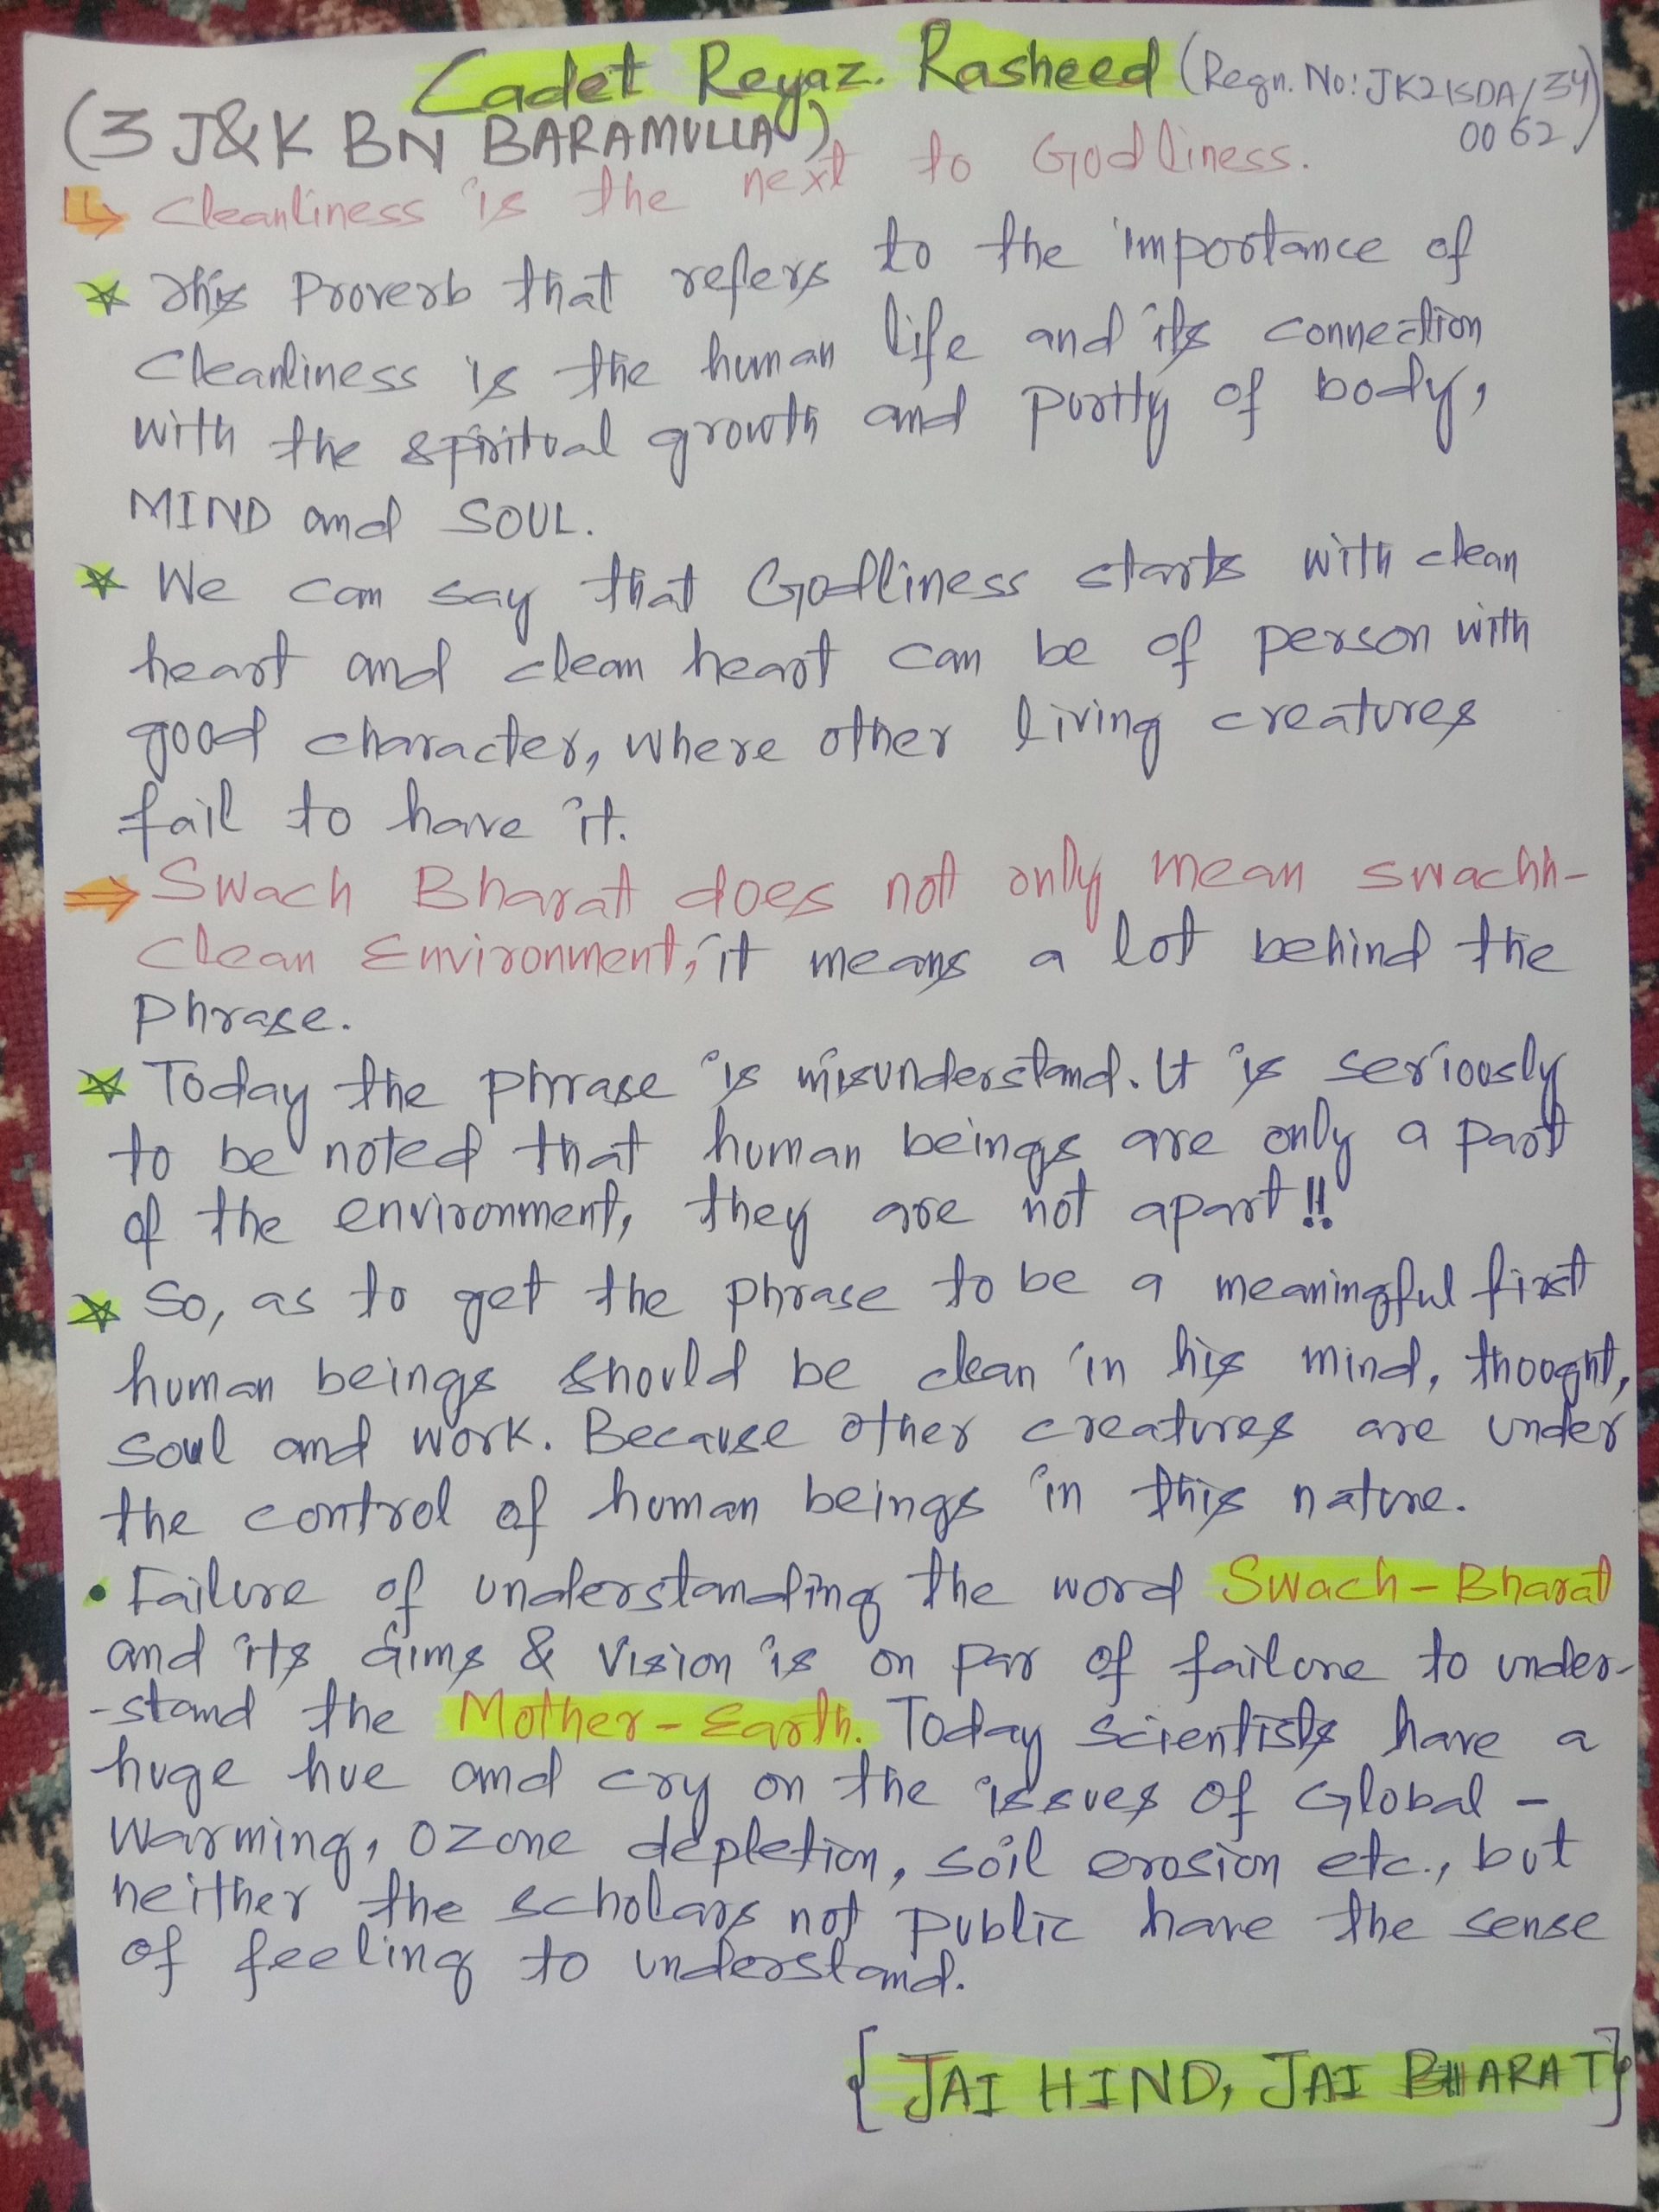 Cadet Reyaz. Rasheed (Regn. No: JK21SDA/34
0062)
(3 J&K BN BARAMULLA)
Cleanliness is the next to Godliness.
This Proverb that refers to the importance of
Cleanliness is the human life and its connection
with the spiritual growth and purity of body,
MIND and SOUL.
We can say that Godliness starts with clean
heart and clean heart can be of person with
good character, where other living creatures
fail to have it.
Swach Bharat does not only mean swachh-
Clean Environment, it means a lot behind the
Phrase.
Today the phrase is misunderstand. It is seriously
to be noted that human beings are only a part
of the environment, they are not apart!!
So, as to get the phrase to be a meaningful first
human beings should be clean in his mind, thought,
soul and work. Because other creatures are under
the control of human beings in this nature.
• Failure of understanding the word Swach-Bharat
and its aims & vision is on par of failure to under-
-stand the Mother-Earth. Today Scientists have a
huge hue and cry on the issues of Global -
Warming, Ozone depletion, soil erosion etc., but
neither the scholars not public have the sense
of feeling to understand.
{JAI HIND, JAI BHARAT}